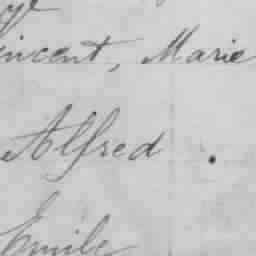 incent, Marie
Alfred .
Emile